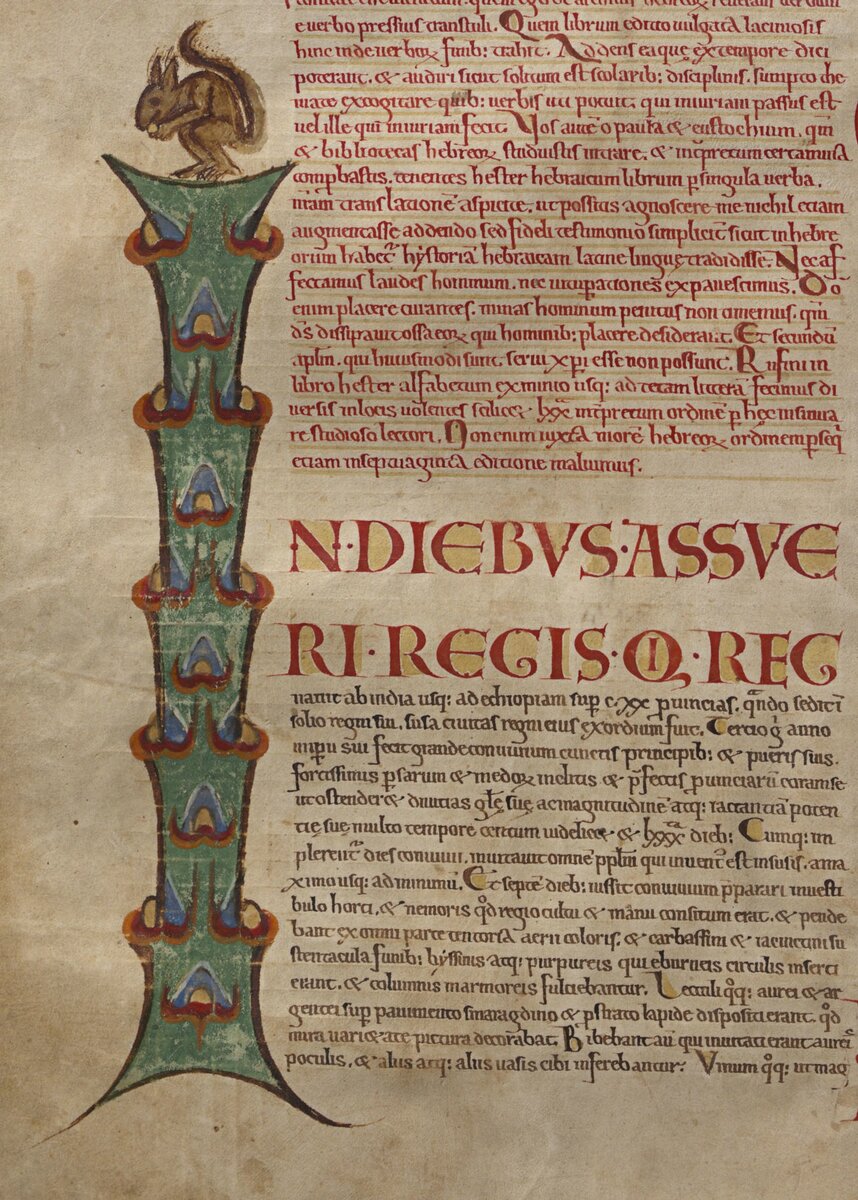 e uerbo pressius transtuli. Quem librum editio uulgata laciniosis
hinc inde uerborꝝ funib: trahit. Addens ea quę ex tempore dici
poterant. & audiri sicut solitum est scolarib: disciplinis. sumpto the
mate excogitare quib: uerbis uti potuit. qui iniuriam passus est
uel ille qui iniuriam fecit. Vos autē o paula & eustochium. qm̄
& bibliotecas hebreoꝝ studuistis intrare. & int̄pretum certamina
comꝓbastis. tenentes hester hebraicum librum ꝑ singula uerba.
nr̄am translationē aspicite. ut possitis agnoscere me nichil etiam
augmentasse addendo sed fideli testimonio simplicit̄ sicut in hebre
orum habet᷑ hystoriā hebraicam latine linguę tradidisse. Nec af
fectamus laudes hominum. nec uituperationes expauescimus. Do
enim placere curantes. minas hominum penitus non timemus. qm̄
ds̄ dissipauit ossa eoꝝ qui hominib: placere desiderant. Et secundū
aplm̄. qui huiusmodi sunt. serui xp̄i esse non possunt. Rursum in
libro hester alfabetum ex minio usq: ad tetam litterā fecimus di
uersis in locis uolentes scilicet lxx int̄pretum ordinē ꝑ hęc insinua
re studioso lectori. Non enim iuxta morē hebreoꝝ ordinem ꝑseq̄
etiam in septuaginta editione maluimus.
N·DIEBVS·ASSVE
RI·REGIS·Q̇·REG
nauit ab india usq: ad ethiopiam sup̄ cxx ꝓuincias. qando sedit ī
solio regni sui. susa ciuitas regni eius exordium fuit. Tercio g̊ anno
imperii sui fecit grande conuiuium cunctis principib: & pueris suis.
fortissimis ꝑsarum & medoꝝ inclitis & p̄fectis ꝓuinciarū coram se
ut ostender& diuitias glę suę. ac magnitudinē atq: iactantiā poten
tię suę multo tempore centum uidelic& & lxxx dieb: Cumq: im
plerent᷑ dies conuiuii. inuitauit omnē pplm̄ qui inuent᷑ est in susis. a ma
ximo usq: ad minimū. Et septē dieb: iussit conuiuium p̄parari in uesti
bulo horti. & nemoris qd̊ regio cultu & manu consitum erat. & pende
bant ex omni parte tentoria aerii coloris. & carbassini & iacinctini su
stentacula funib: byssinis atq: purpureis qui eburneis circulis inserti
erant. & columnis marmoreis fulciebantur. Lectuli qq̊: aurei & ar
gentei sup̄ pauimentum smaragdino & ꝑstrato lapide dispositi erant. qd̊
mira uari&ate pictura decorabat. Bibebant aū qui inuitati erant aureis
poculis. & aliis atq: aliis uasis cibi inferebantur. Vinum qq̊: ut mag